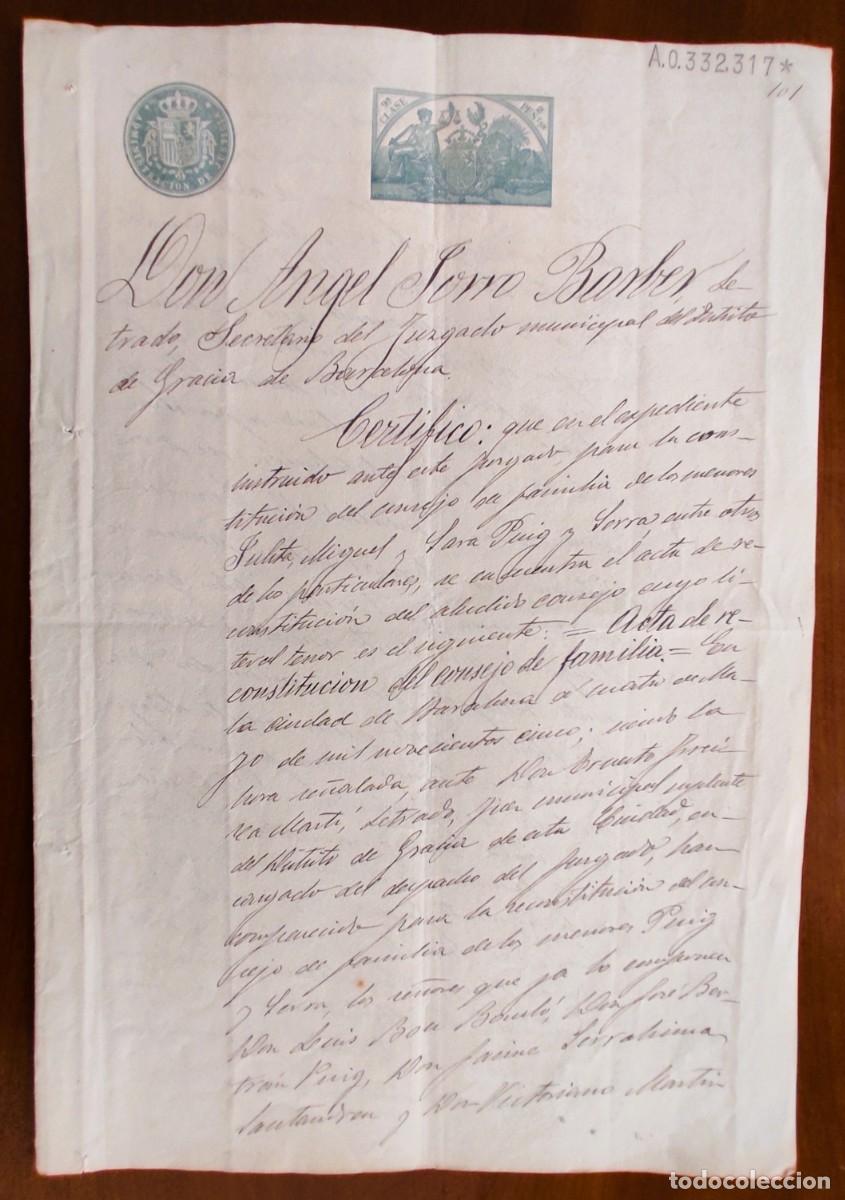 A.0.332.317*
101
9ª CLASE
Don Angel Torro Barber, Le-
trado, Secretario del Juzgado municipal del Distrito
de Gracia de Barcelona.
Certifico: que en el expediente
instruido ante este Juzgado para la cons-
titución del consejo de familia de los menores
Julita, Miguel y Sara Puig y Serra, entre otros
de los particulares, se encuentra el acta de re-
constitución del aludido consejo cuyo li-
teral tenor es el siguiente: = Acta de re-
constitucion del consejo de familia = En
la ciudad de Barcelona á cuatro de Ma-
yo de mil novecientos cinco; siendo la
hora señalada, ante Don Ernesto
Martí, Letrado, Juez municipal suplente
del Distrito de Gracia de esta Ciudad, en-
cargado del despacho del Juzgado, han
comparecido para la reconstitución del con-
sejo de familia de los menores Puig
y Serra, los señores que ya lo componen
Don Luis, Don José Ber-
trán Puig, Don Jaime Serrahima
Santandreu y Don Victoriano Martin
todocoleccion